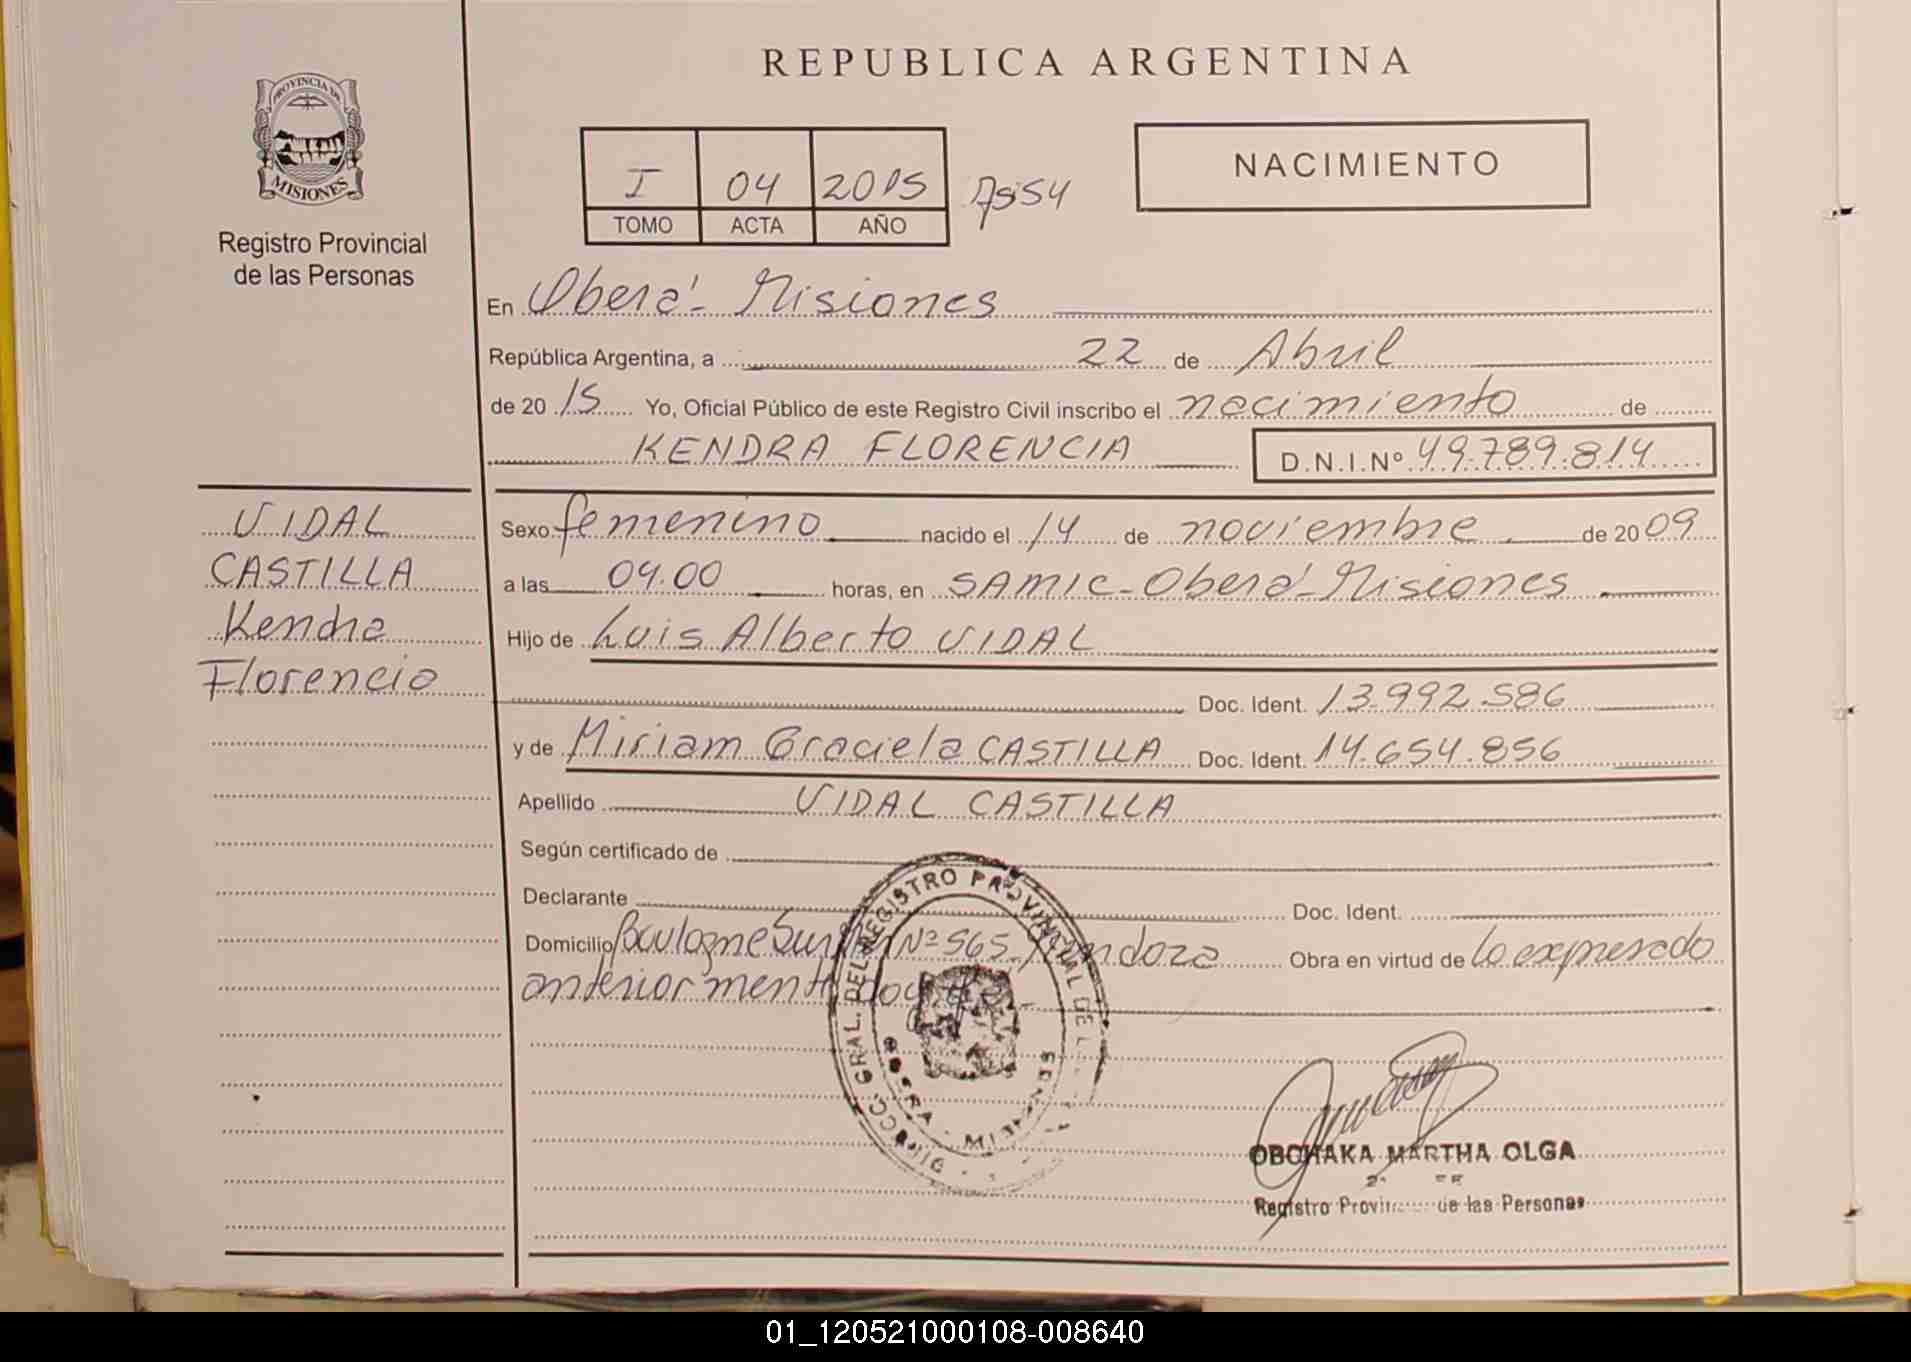 REPUBLICA ARGENTINA
PROVINCIA DE
MISIONES
Registro Provincial
de las Personas
I 04 2015
TOMO ACTA AÑO
NACIMIENTO
En Oberá - Misiones
República Argentina, a 22 de Abril
de 2015 Yo, Oficial Público de este Registro Civil inscribo el nacimiento de
KENDRA FLORENCIA D.N.I.Nº 49.789.814
VIDAL
CASTILLA
Kendra
Florencia
Sexo femenino nacido el 14 de noviembre de 2009
a las 04.00 horas, en SAMIC - Oberá - Misiones
Hijo de Luis Alberto VIDAL
Doc. Ident. 13.992.586
y de Miriam Graciela CASTILLA Doc. Ident. 14.654.856
Apellido VIDAL CASTILLA
Según certificado de
Declarante Doc. Ident.
Domicilio Boulogne Sur Nº 565 - Mendoza Obra en virtud de lo expresado
anteriormente
DIRECC. GRAL. DEL REGISTRO PROVINCIAL DE
OBERA - MISIONES
OBCHAKA MARTHA OLGA
Registro Provin de las Personas
01_120521000108-008640